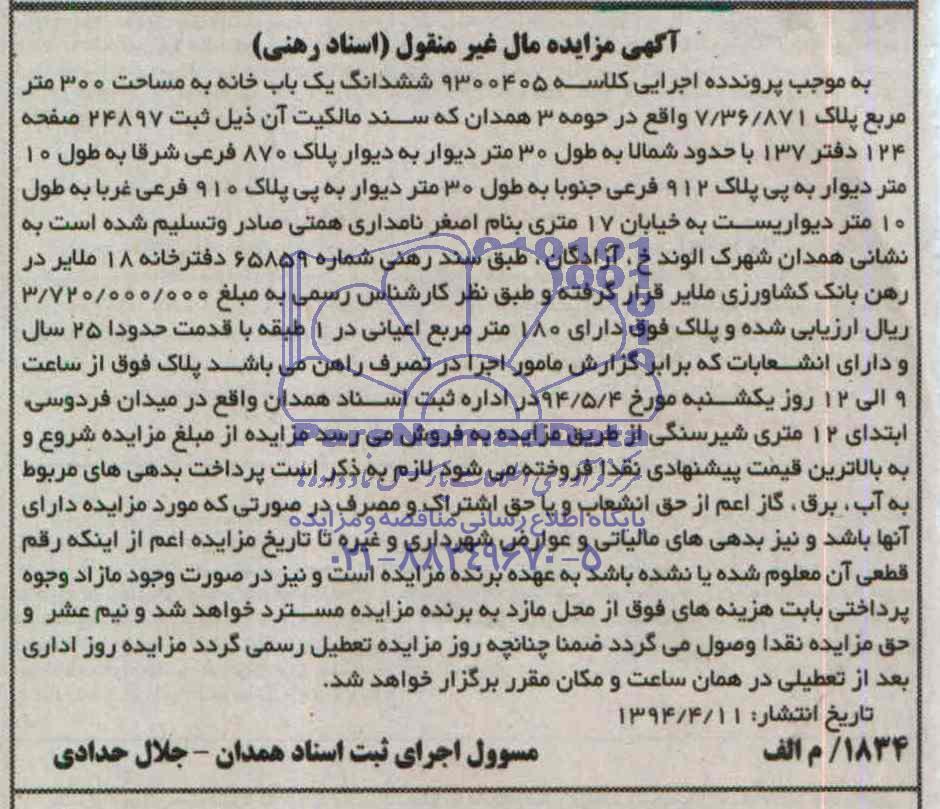 آگهی مزایده مال غیر منقول (اسناد رهنی)
به موجب پرونده اجرایی کلاسه ۹۳۰۰۴۰۵ ششدانگ یک باب خانه به مساحت ۳۰۰ متر
مربع پلاک ۷/۳۶/۸۷۱ واقع در حومه ۳ همدان که سند مالکیت آن ذیل ثبت ۲۴۸۹۷ صفحه
۱۲۴ دفتر ۱۳۷ با حدود شمالا به طول ۳۰ متر دیوار به دیوار پلاک ۸۷۰ فرعی شرقا به طول ۱۰
متر دیوار به پی پلاک ۹۱۲ فرعی جنوبا به طول ۳۰ متر دیوار به پی پلاک ۹۱۰ فرعی غربا به طول
۱۰ متر دیواریست به خیابان ۱۷ متری بنام اصغر نامداری همتی صادر وتسلیم شده است به
نشانی همدان شهرک الوند خ. آزادگان، طبق سند رهنی شماره ۶۵۸۵۹ دفترخانه ۱۸ ملایر در
رهن بانک کشاورزی ملایر قرار گرفته و طبق نظر کارشناس رسمی به مبلغ ۳/۷۲۰/۰۰۰/۰۰۰
ریال ارزیابی شده و پلاک فوق دارای ۱۸۰ متر مربع اعیانی در ۱ طبقه با قدمت حدودا ۲۵ سال
و دارای انشعابات که برابر گزارش مامور اجرا در تصرف راهن می باشد پلاک فوق از ساعت
۹ الی ۱۲ روز یکشنبه مورخ ۹۴/۵/۴در اداره ثبت اسناد همدان واقع در میدان فردوسی.
ابتدای ۱۲ متری شیرسنگی از طریق مزایده به فروش می رسد مزایده از مبلغ مزایده شروع و
به بالاترین قیمت پیشنهادی نقدا فروخته می شود لازم به ذکر است پرداخت بدهی های مربوط
به آب، برق، گاز اعم از حق انشعاب و یا حق اشتراک و مصرف در صورتی که مورد مزایده دارای
آنها باشد و نیز بدهی های مالیاتی و عوارض شهرداری و غیره تا تاریخ مزایده اعم از اینکه رقم
قطعی آن معلوم شده یا نشده باشد به عهده برنده مزایده است و نیز در صورت وجود مازاد وجوه
پرداختی بابت هزینه های فوق از محل مازد به برنده مزایده مسترد خواهد شد و نیم عشر و
حق مزایده نقدا وصول می گردد ضمنا چنانچه روز مزایده تعطیل رسمی گردد مزایده روز اداری
بعد از تعطیلی در همان ساعت و مکان مقرر برگزار خواهد شد.
تاریخ انتشار: ۱۳۹۴/۴/۱۱
۱۸۳۴/ م الف
مسوول اجرای ثبت اسناد همدان - جلال حدادی
ParsNamadData
پایگاه اطلاع رسانی مناقصه و مزایده
۰۲۱-۸۸۳۴۹۶۷۰-۵